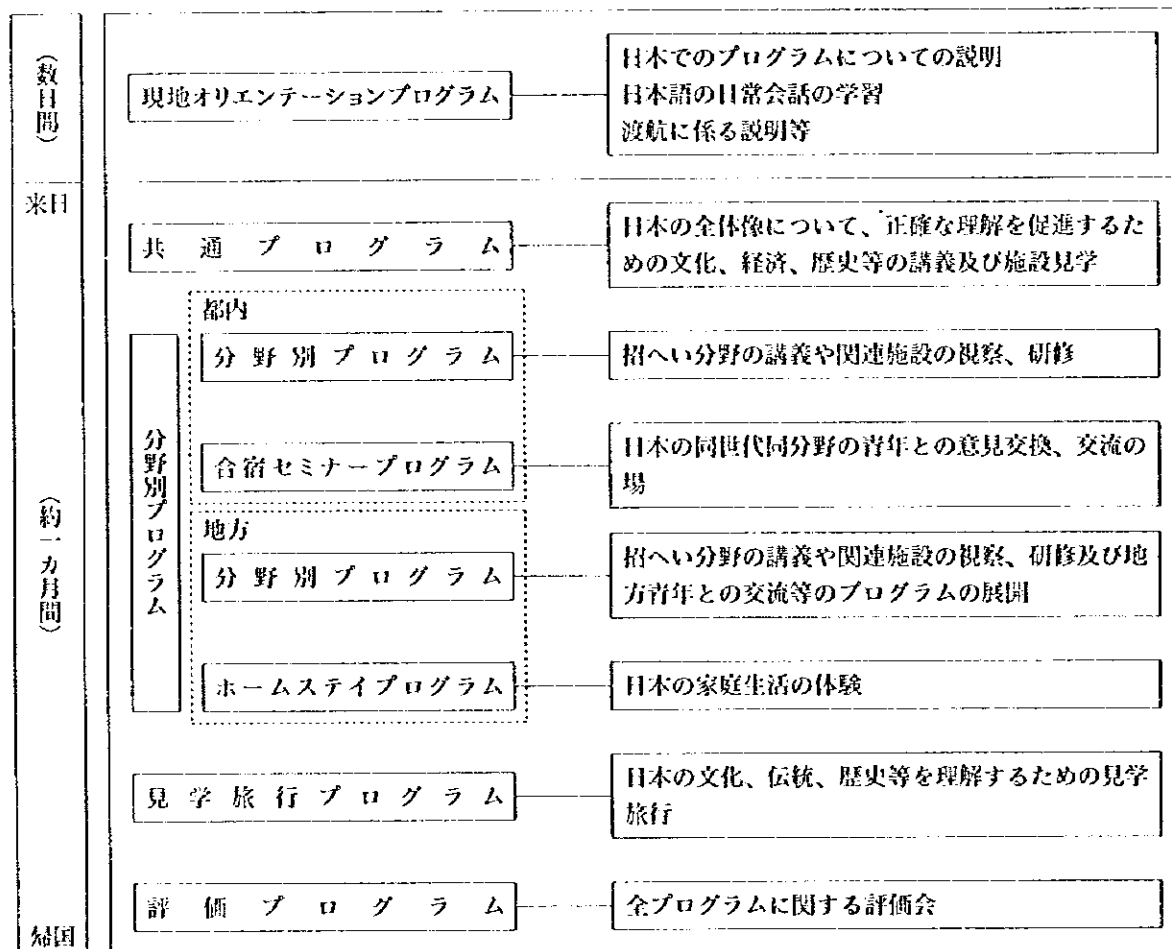 (数日間)
現地オリエンテーションプログラム
日本でのプログラムについての説明
日本語の日常会話の学習
渡航に係る説明等
来日
(約一カ月間)
共通プログラム
日本の全体像について、正確な理解を促進するた
めの文化、経済、歴史等の講義及び施設見学
分野別プログラム
都内
分野別プログラム
招へい分野の講義や関連施設の視察、研修
合宿セミナープログラム
日本の同世代同分野の青年との意見交換、交流の
場
地方
分野別プログラム
招へい分野の講義や関連施設の視察、研修及び地
方青年との交流等のプログラムの展開
ホームステイプログラム
日本の家庭生活の体験
見学旅行プログラム
日本の文化、伝統、歴史等を理解するための見学
旅行
評価プログラム
全プログラムに関する評価会
帰国